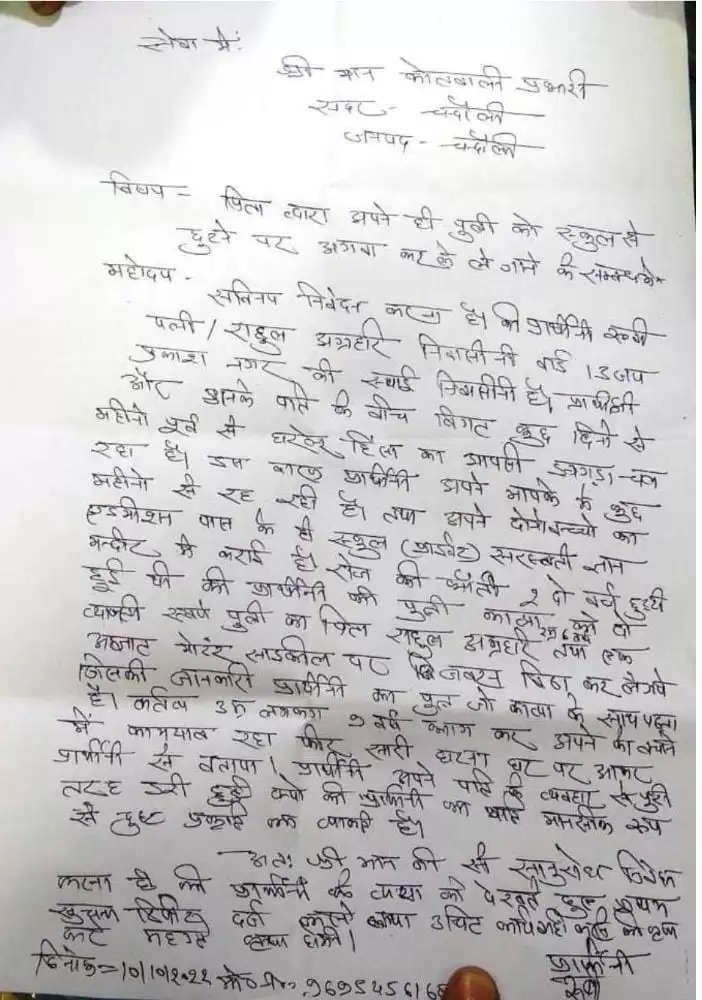 सेवा में:
श्री मान कोतवाली प्रभारी
सदर - चन्दौली
जनपद - चन्दौली
विषय = पिता द्वारा अपने ही पुत्री को स्कुल से
छुटने पर अगवा कर के ले जाने के सम्बन्ध मे
महोदय -
सविनय निवेदन करना है। की प्रार्थीनी रूबी
पत्नी / राहुल अग्रहरि निवासीनी वार्ड 13 जय
प्रकाश नगर की स्थाई निवासीनी है। प्रार्थीनी
और उनके पति के बीच विगत कुछ दिनो से
महीनो पूर्व से घरेलू हिंसा का आपसी झगड़ा चल
रहा है। इस कारण प्रार्थीनी अपने मायके के कुछ
महीनो से रह रही है। तथा अपने दोनो बच्चो का
एडमीशन पास के ही स्कुल (प्राईवेट) सरस्वती ज्ञान
मन्दीर मे कराई है। रोज की भाँती 2 दो बजे छुट्टी
हुई थी की प्रार्थीनी की पुत्री काव्या को दो
व्यक्ती स्वयं पुत्री का पिता राहुल अग्रहरि तथा एक
अज्ञात मोटर साईकील पर जबरन बिठा कर ले गये
जिसकी जानकारी प्रार्थीनी का पुत्र जो काव्या के साथ पढ़ता
है। उम्र लगभग 9 वर्ष भाग कर अपने को बचाने
में कामयाब रहा फिर सारी घटना घर पर आकर
प्रार्थीनी से बताया। प्रार्थीनी अपने पति के व्यवहार से पुरी
तरह डरी हुई क्यो की प्रार्थीनी का पति मानसीक रूप
से दुष्ट प्रकृति का व्यक्ति है।
अतः श्री मान जी से सानुरोध निवेदन
करना है की प्रार्थीनी के व्यथा को देखते हुए
दर्ज कराने तथा उचित कार्यवाही करने की कृपा
करे महान कृपा होगी।
प्रार्थीनी
रूबी
दिनांक = 10/10/2022 मो० न० - 9695456168